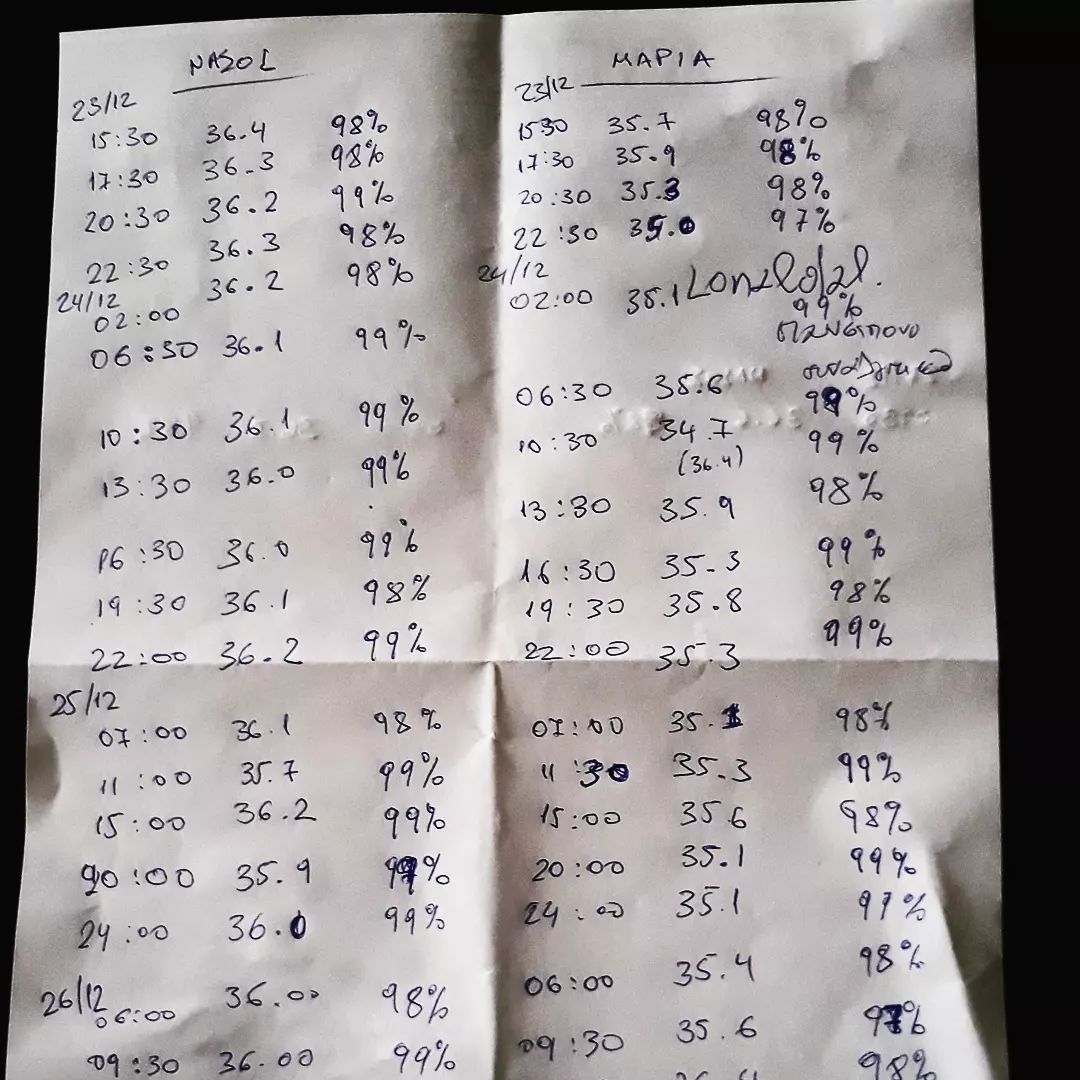 ΝΑΣΟΣ
23/12
15:30 36.4 98%
17:30 36.3 98%
20:30 36.2 99%
22:30 36.3 98%
24/12
02:00 36.2 98%
06:30 36.1 99%
10:30 36.1 99%
13:30 36.0 99%
16:30 36.0 99%
19:30 36.1 98%
22:00 36.2 99%
25/12
07:00 36.1 98%
11:00 35.7 99%
15:00 36.2 99%
20:00 35.9 99%
24:00 36.0 99%
26/12
06:00 36.00 98%
09:30 36.00 99%
ΜΑΡΙΑ
23/12
1530 35.7 98%
17:30 35.9 98%
20:30 35.3 98%
22:30 35.0 97%
24/12
02:00 35.1 99%
06:30 35.6
10:30 34.7 99%
(36.4)
13:30 35.9 98%
16:30 35.3 99%
19:30 35.8 98%
22:00 35.3 99%
07:00 35.1 98%
11:30 35.3 99%
15:00 35.6 98%
20:00 35.1 99%
24:00 35.1 97%
06:00 35.4 98%
09:30 35.6 97%
98%